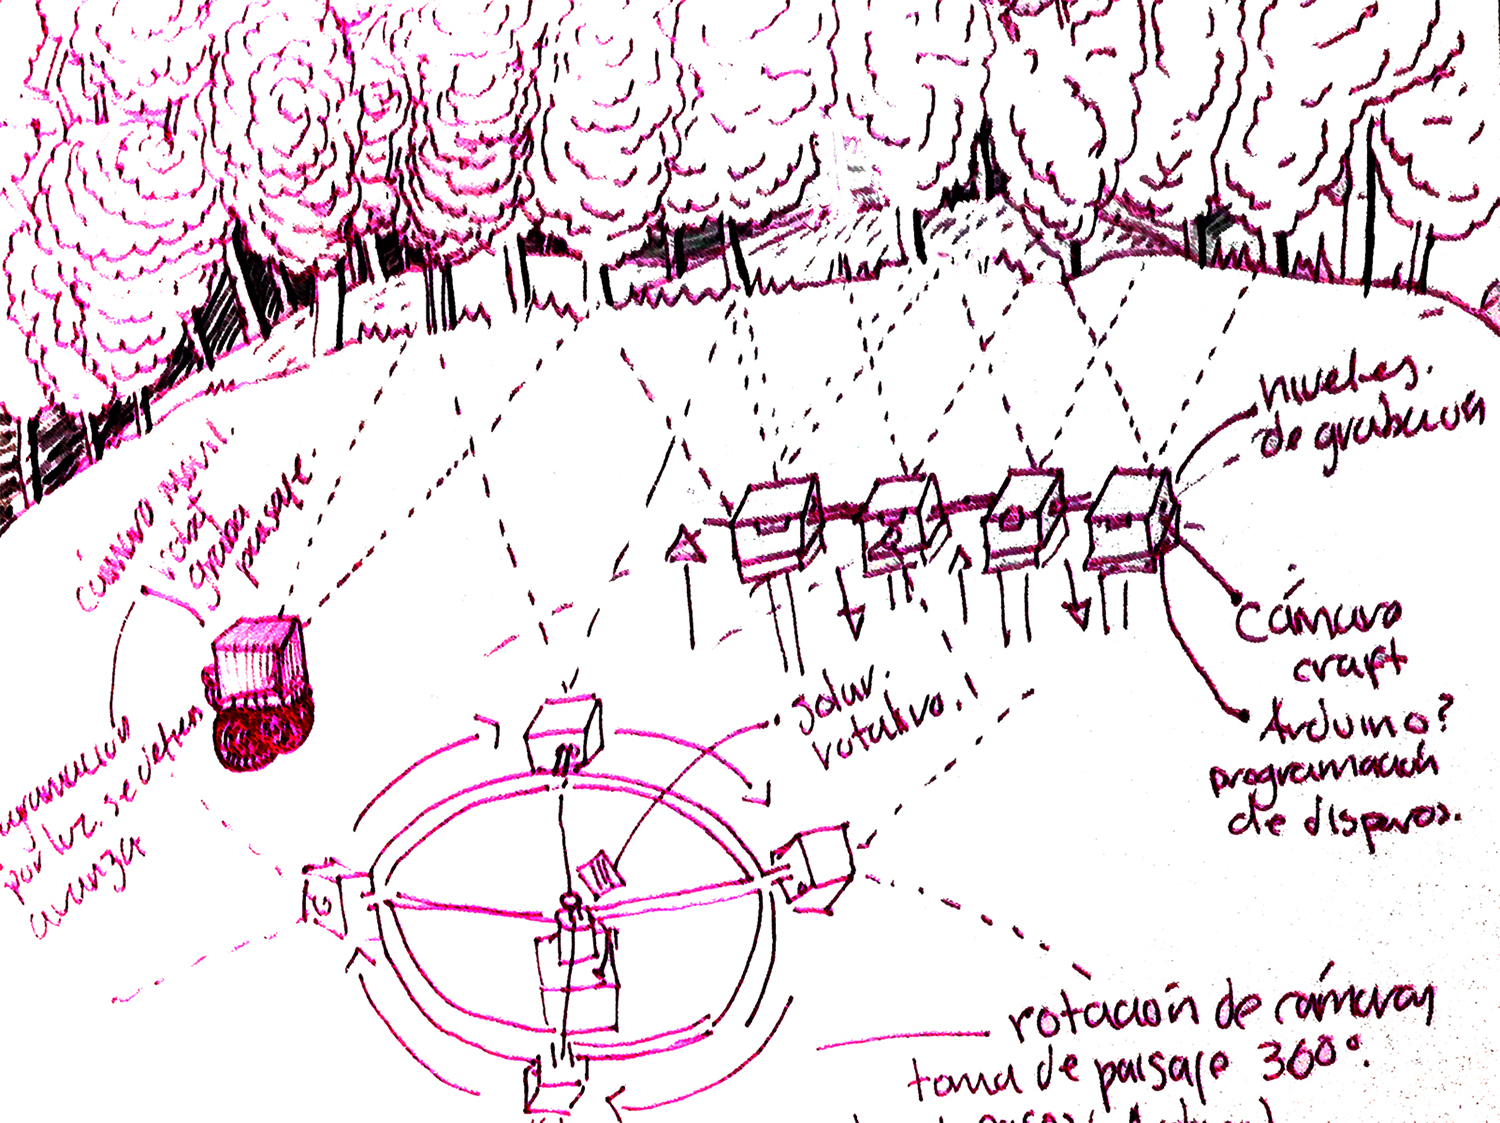 niveles.
de grabación
cámara movil.
robot
graba
paisaje.
Cámara
craft
Arduino?
programación
de disparos.
solar.
rotativo.!
por luz. se detien
avanza
rotación de cámaras
toma de paisaje 360°.